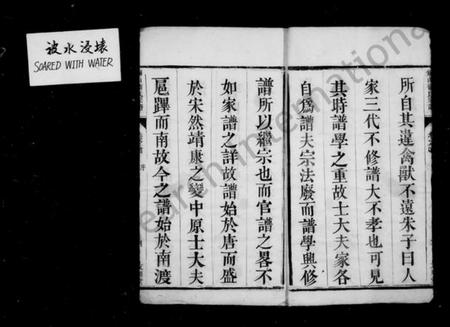 被水浸壞
SOARED WITH WATER
所自其違禽獸不遠朱子曰人
家三代不修譜大不孝也可見
其時譜學之重故士大夫家各
自為譜夫宗法廢而譜學興修
譜所以繼宗也而官譜之畧不
如家譜之詳故譜始於唐而盛
於宋然靖康之變中原士大夫
扈蹕而南故今之譜始於南渡